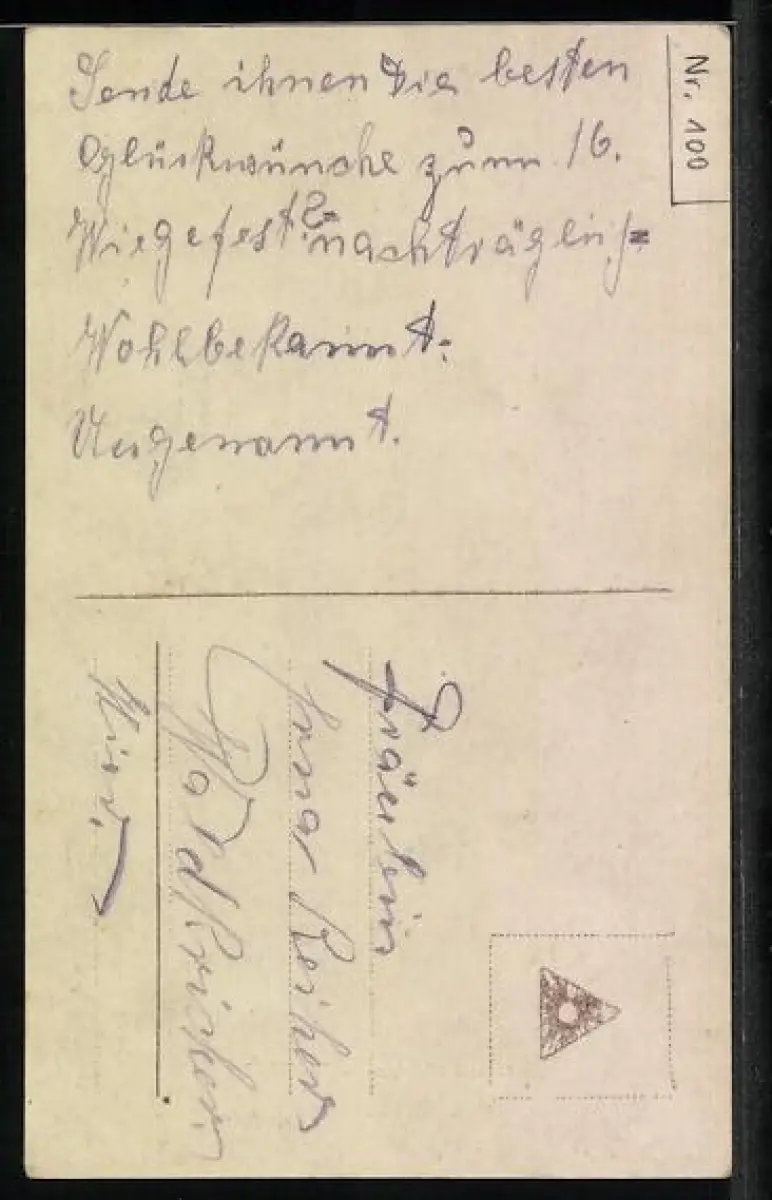 Sende ihnen Die besten
Glückwünsche zum 16.
Wiegefest nachträglich
Wohlbekannt.
Ungenannt.
Nr. 100
Fräulein
Irma
Waldkirchen
Hier.